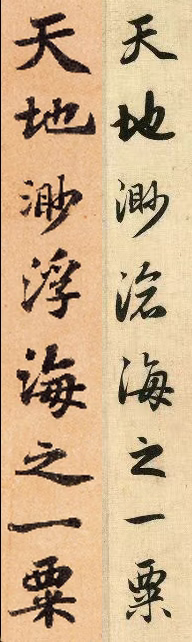 天地渺滄海之一粟
天地渺浮海之一粟